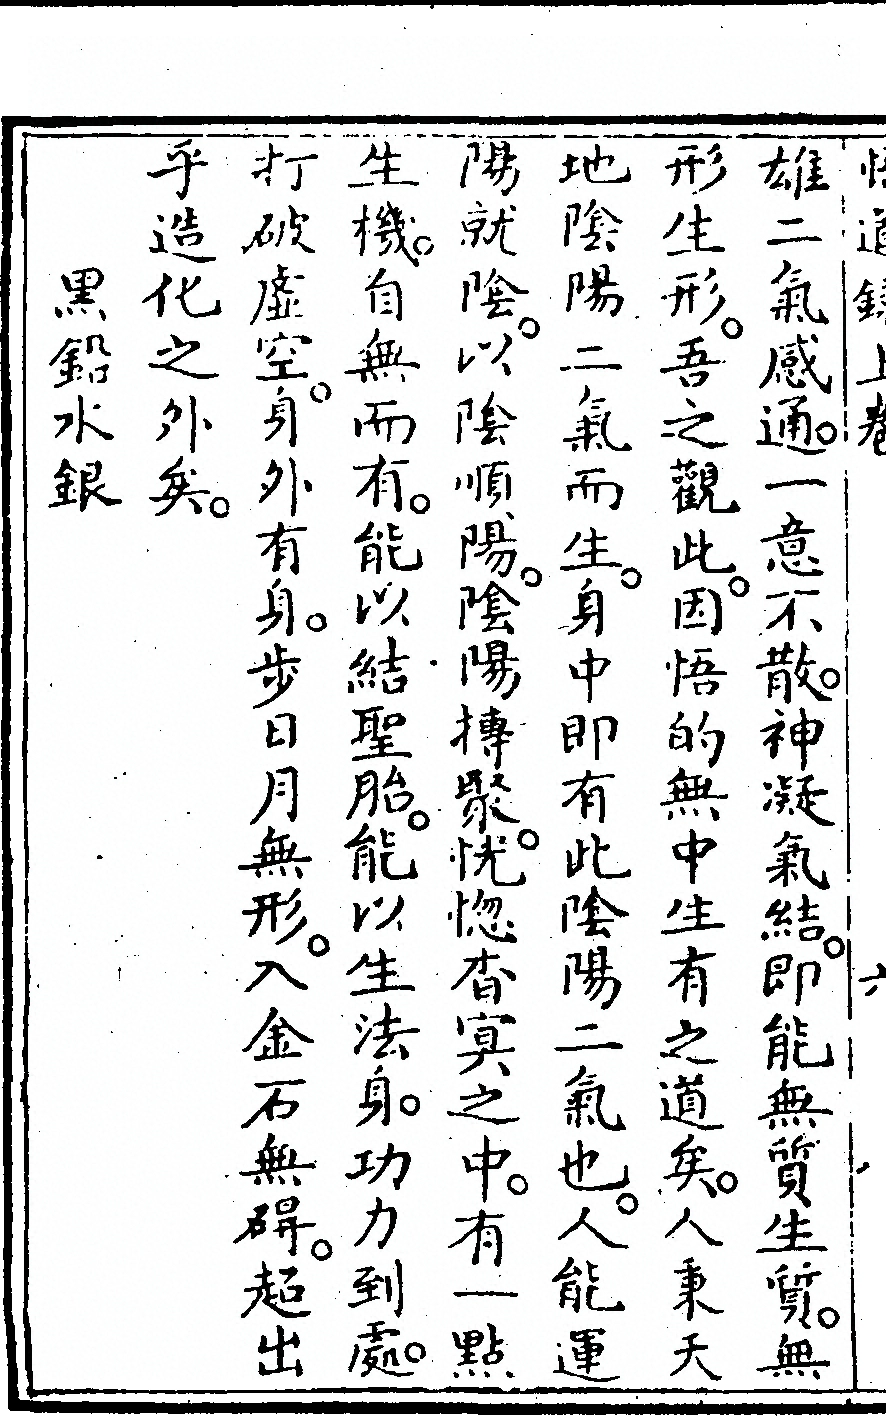 悟道錄上卷 六
雄二氣感通。一意不散。神凝氣結。即能無質生質。無
形生形。吾之觀此。因悟的無中生有之道矣。人秉天
地陰陽二氣而生。身中即有此陰陽二氣也。人能運
陽就陰。以陰順陽。陰陽摶聚。恍惚杳冥之中。有一點
生機。自無而有。能以結聖胎。能以生法身。功力到處。
打破虛空。身外有身。步日月無形。入金石無碍。超出
乎造化之外矣。
黑鉛水銀